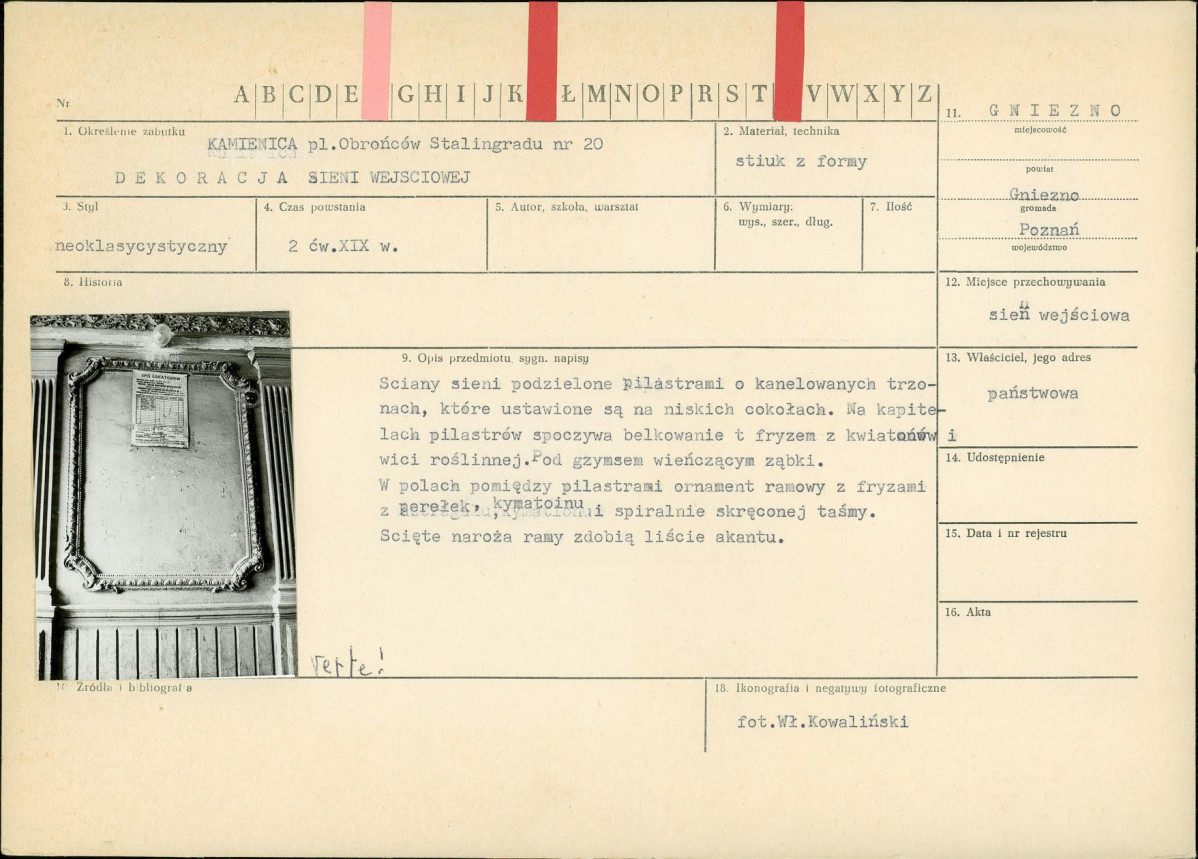 Nr
A B C D E G H I J K Ł M N O P R S T V W X Y Z
1. Określenie zabytku
KAMIENICA pl.Obrońców Stalingradu nr 20
DEKORACJA SIENI WEJSCIOWEJ
2. Materiał, technika
stiuk z formy
3. Styl
neoklasycystyczny
4. Czas powstania
2 ćw.XIX w.
5. Autor, szkoła, warsztat
6. Wymiary:
wys., szer., dług.
7. Ilość
8. Historia
SPIS LOKATORÓW
9. Opis przedmiotu, sygn. napisy
Sciany sieni podzielone pilastrami o kanelowanych trzo-
nach, które ustawione są na niskich cokołach. Na kapite-
lach pilastrów spoczywa belkowanie t fryzem z kwiatonów i
wici roślinnej.Pod gzymsem wieńczącym ząbki.
W polach pomiędzy pilastrami ornament ramowy z fryzami
z perełek, kymatoinu i spiralnie skręconej taśmy.
Scięte naroża ramy zdobią liście akantu.
verte!
Źródła i bibliografia
18. Ikonografia i negatywy fotograficzne
fot.Wł.Kowaliński
11. GNIEZNO
miejscowość
powiat
Gniezno
gromada
Poznań
województwo
12. Miejsce przechowywania
sień wejściowa
13. Właściciel, jego adres
państwowa
14. Udostępnienie
15. Data i nr rejestru
16. Akta